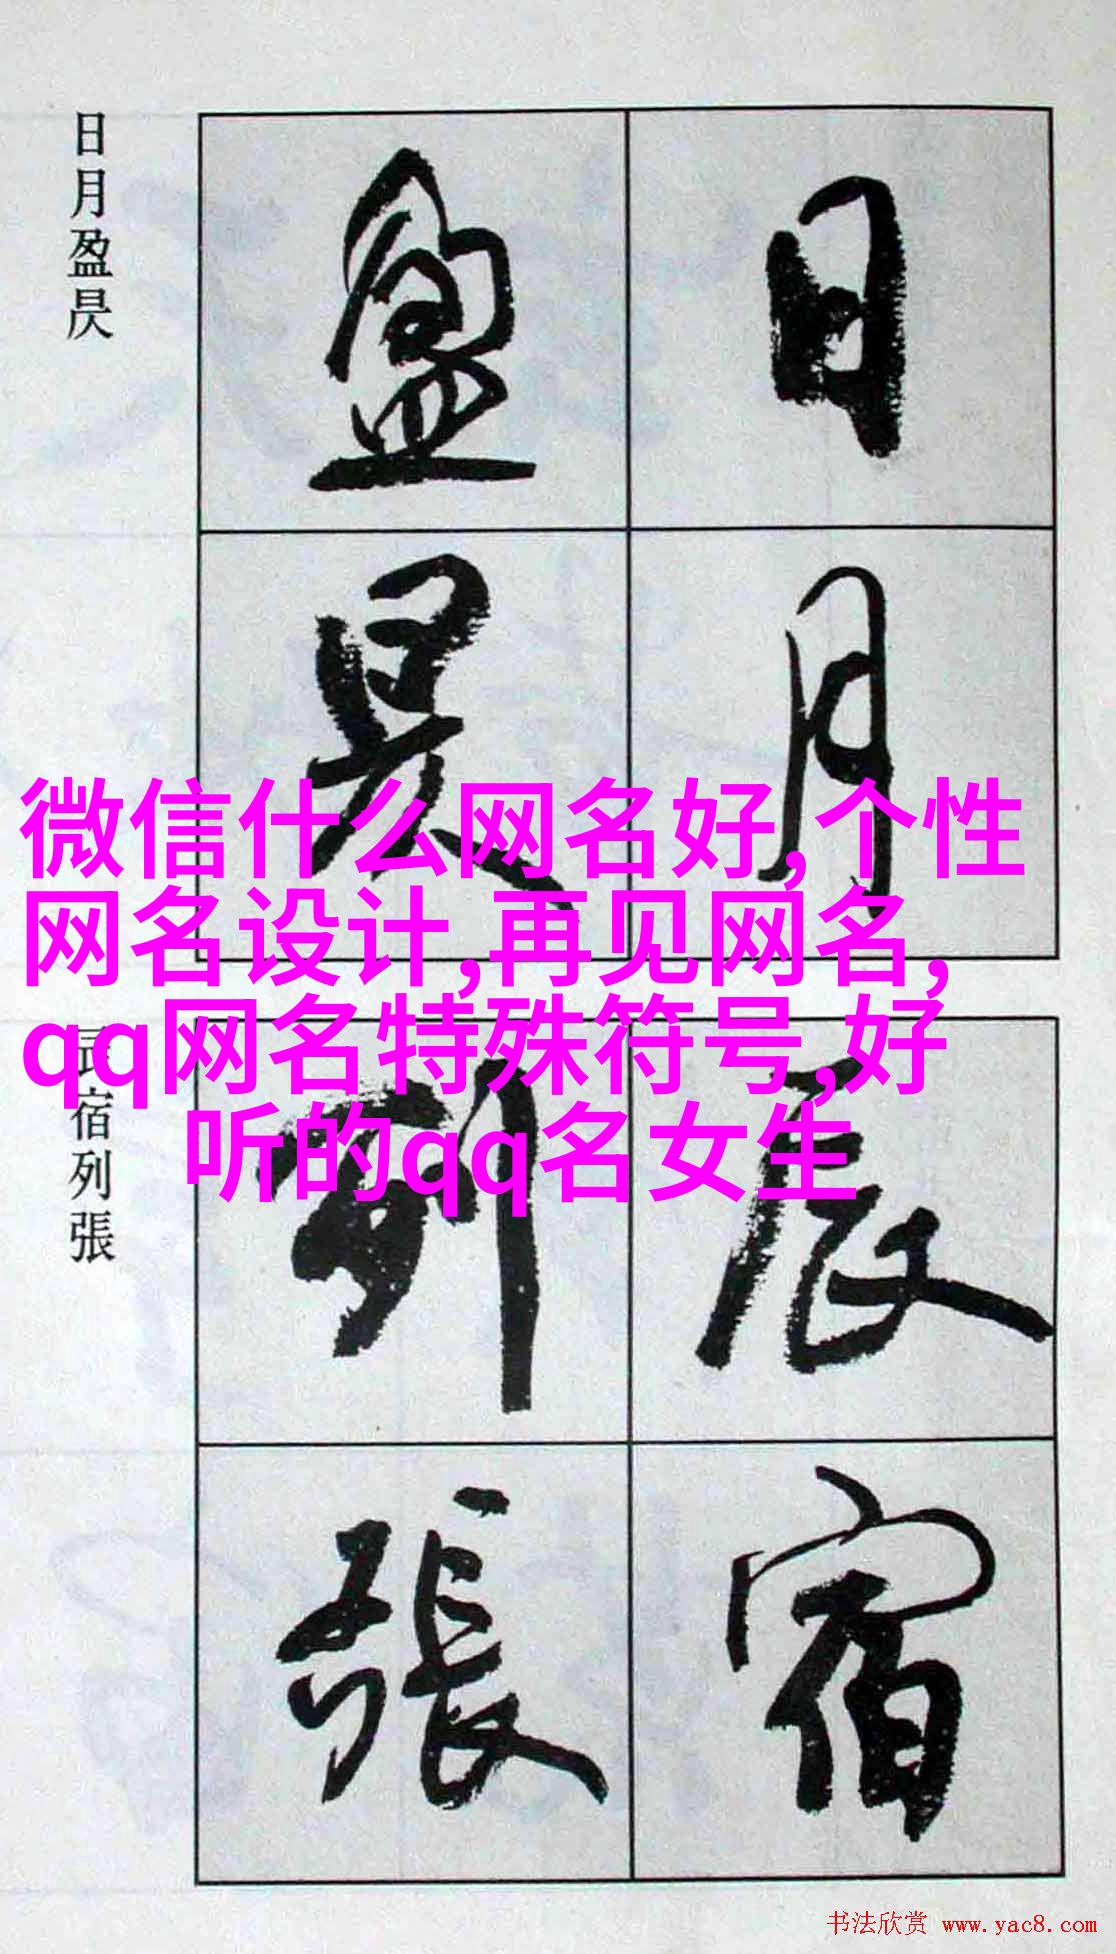 日月盈昃
日
月
盈
昃
微信什么网名好,个性
网名设计,再见网名,
qq网名特殊符号,好
听的qq名女生
辰宿列張
辰
宿
列
張
书法欣赏 www.yac8.com